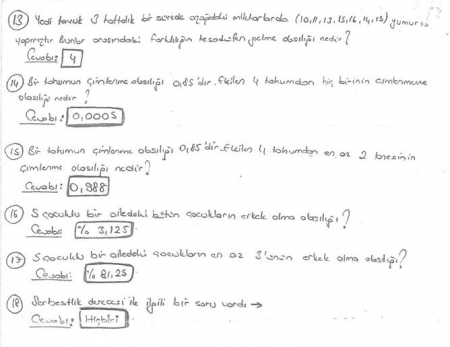 (13) Yedi tavuk 3 haftalık bir sürede aşağıdaki miktarlarda (10,11,13,15,16,14,15) yumurta
yapmıştır Bunlar arasındaki farklılığın tesadüfen gelme olasılığı nedir?
Cevabı: 4
(14) Bir tohumun çimlenme olasılığı 0,85'dir. Ekilen 4 tohumdan hiç birinin çimlenmeme
olasılığı nedir?
Cevabı: 0,0005
(15) Bir tohumun çimlenme olasılığı 0,85'dir. Ekilen 4 tohumdan en az 2 tanesinin
çimlenme olasılığı nedir?
Cevabı: 0,988
(16) 5 çocuklu bir ailedeki bütün çocukların erkek olma olasılığı?
Cevabı: % 3,125
(17) 5 çocuklu bir ailedeki çocukların en az 3'ünün erkek olma olasılığı?
Cevabı: % 81,25
(18) Serbestlik derecesi ile ilgili bir soru vardı →
Cevabı: Hiçbiri